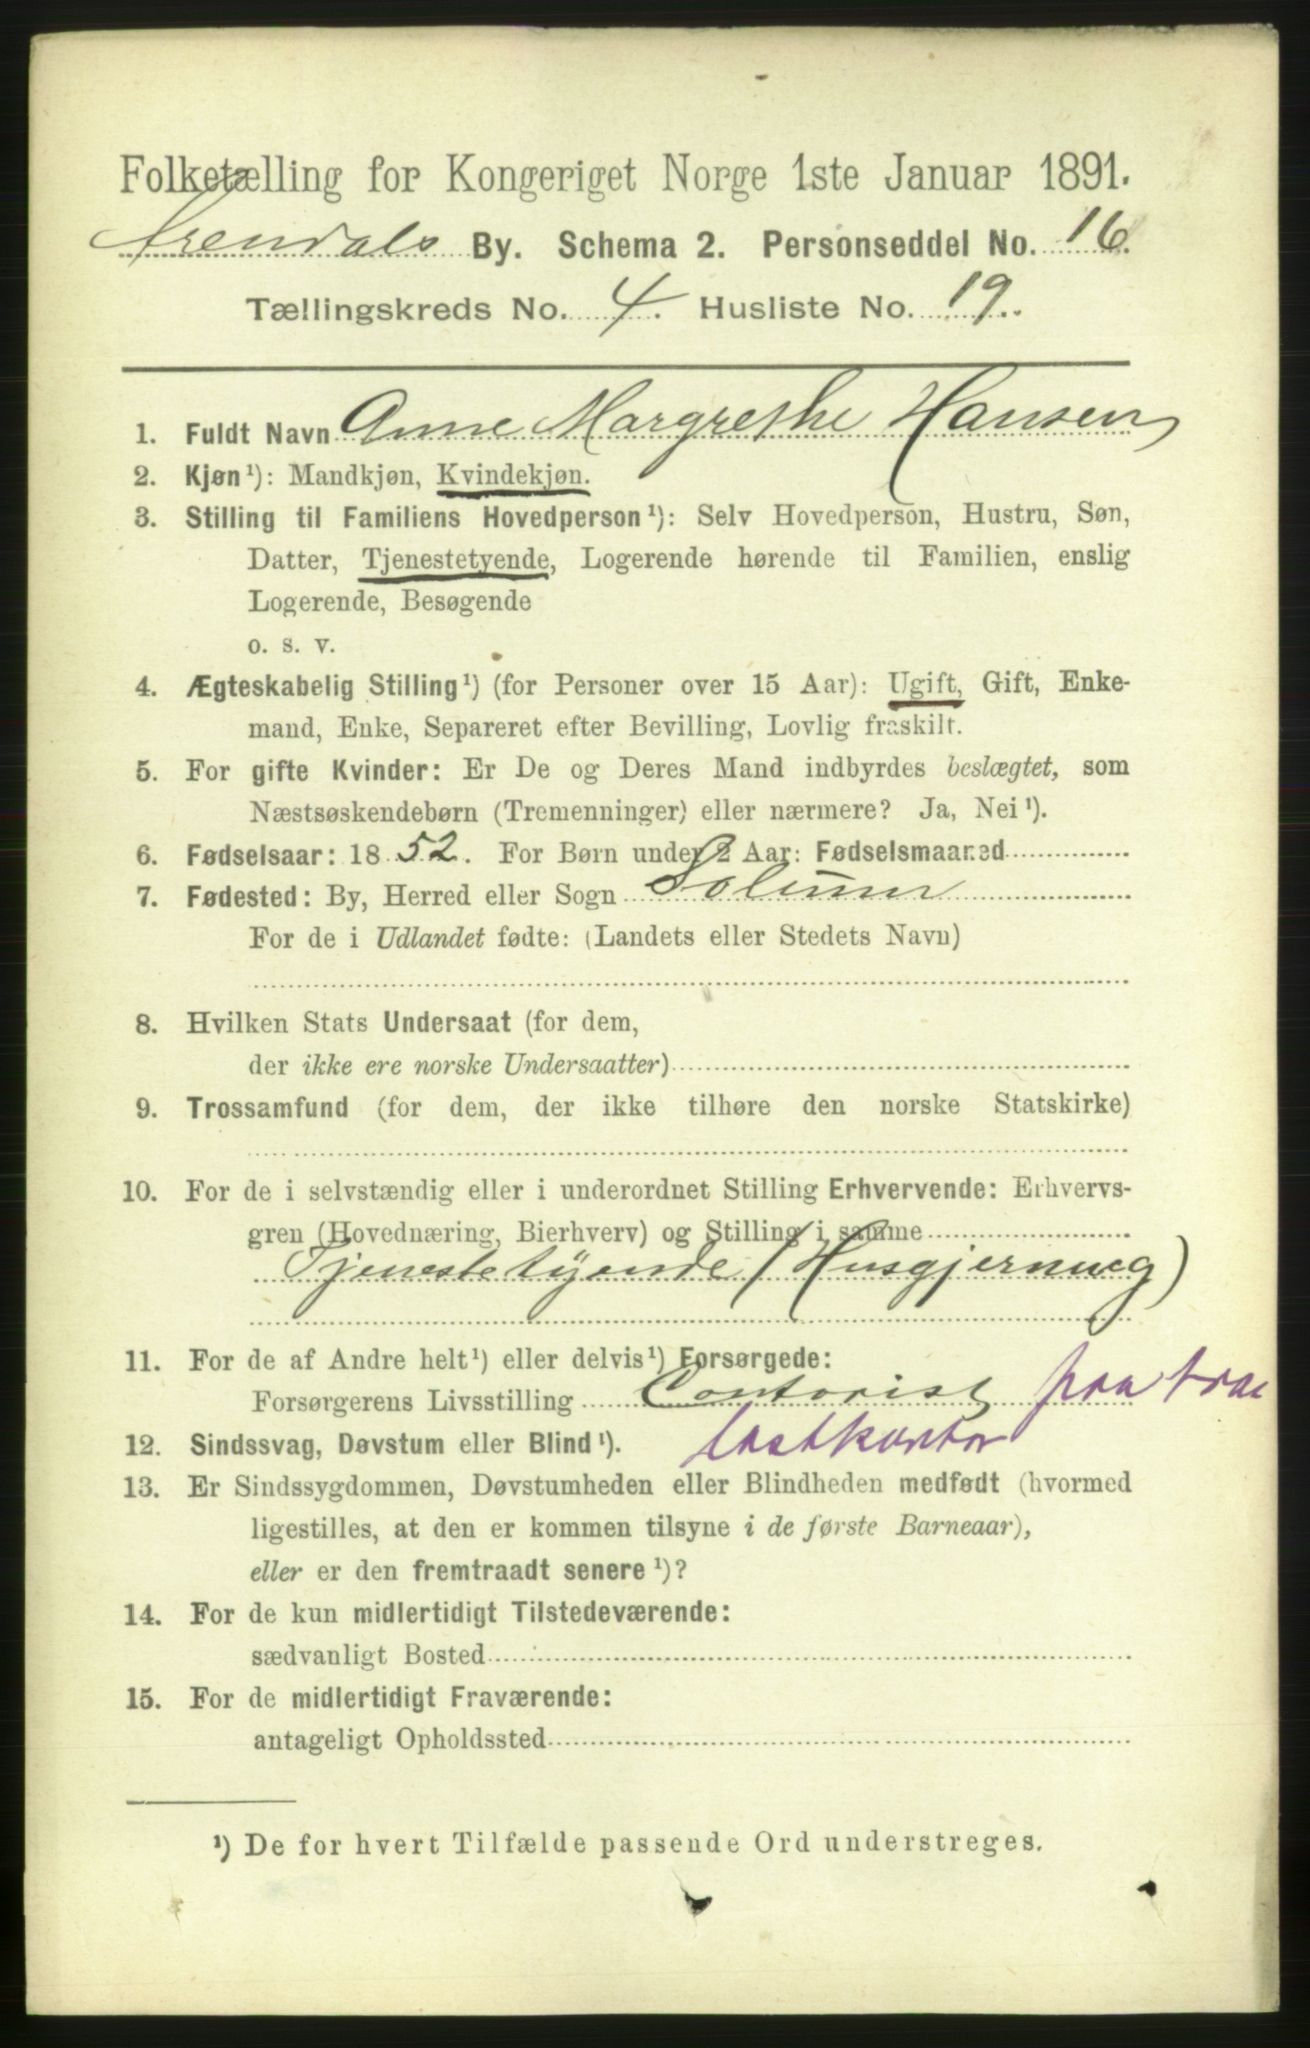 Folketælling for Kongeriget Norge 1ste Januar 1891.
Arendals By. Schema 2. Personseddel No. 16.
Tællingskreds No. 4. Husliste No. 19.
1. Fuldt Navn Anne Margrethe Hansen
2. Kjøn¹): Mandkjøn, Kvindekjøn.
3. Stilling til Familiens Hovedperson¹): Selv Hovedperson, Hustru, Søn,
Datter, Tjenestetyende, Logerende hørende til Familien, enslig
Logerende, Besøgende
o. s. v.
4. Ægteskabelig Stilling¹) (for Personer over 15 Aar): Ugift, Gift, Enke-
mand, Enke, Separeret efter Bevilling, Lovlig fraskilt.
5. For gifte Kvinder: Er De og Deres Mand indbyrdes beslægtet, som
Næstsøskendebørn (Tremenninger) eller nærmere? Ja, Nei¹).
6. Fødselsaar: 1852. For Børn under 2 Aar: Fødselsmaaned
7. Fødested: By, Herred eller Sogn Solum
For de i Udlandet fødte: (Landets eller Stedets Navn)
8. Hvilken Stats Undersaat (for dem,
der ikke ere norske Undersaatter)
9. Trossamfund (for dem, der ikke tilhøre den norske Statskirke)
10. For de i selvstændig eller i underordnet Stilling Erhvervende: Erhvervs-
gren (Hovednæring, Bierhverv) og Stilling i samme
Tjenestetyende (Husgjerning)
11. For de af Andre helt¹) eller delvis¹) Forsørgede:
Forsørgerens Livsstilling Contorist paa træ
lastkontor
12. Sindssvag, Døvstum eller Blind¹).
13. Er Sindssygdommen, Døvstumheden eller Blindheden medfødt (hvormed
ligestilles, at den er kommen tilsyne i de første Barneaar),
eller er den fremtraadt senere¹)?
14. For de kun midlertidigt Tilstedeværende:
sædvanligt Bosted
15. For de midlertidigt Fraværende:
antageligt Opholdssted
¹) De for hvert Tilfælde passende Ord understreges.